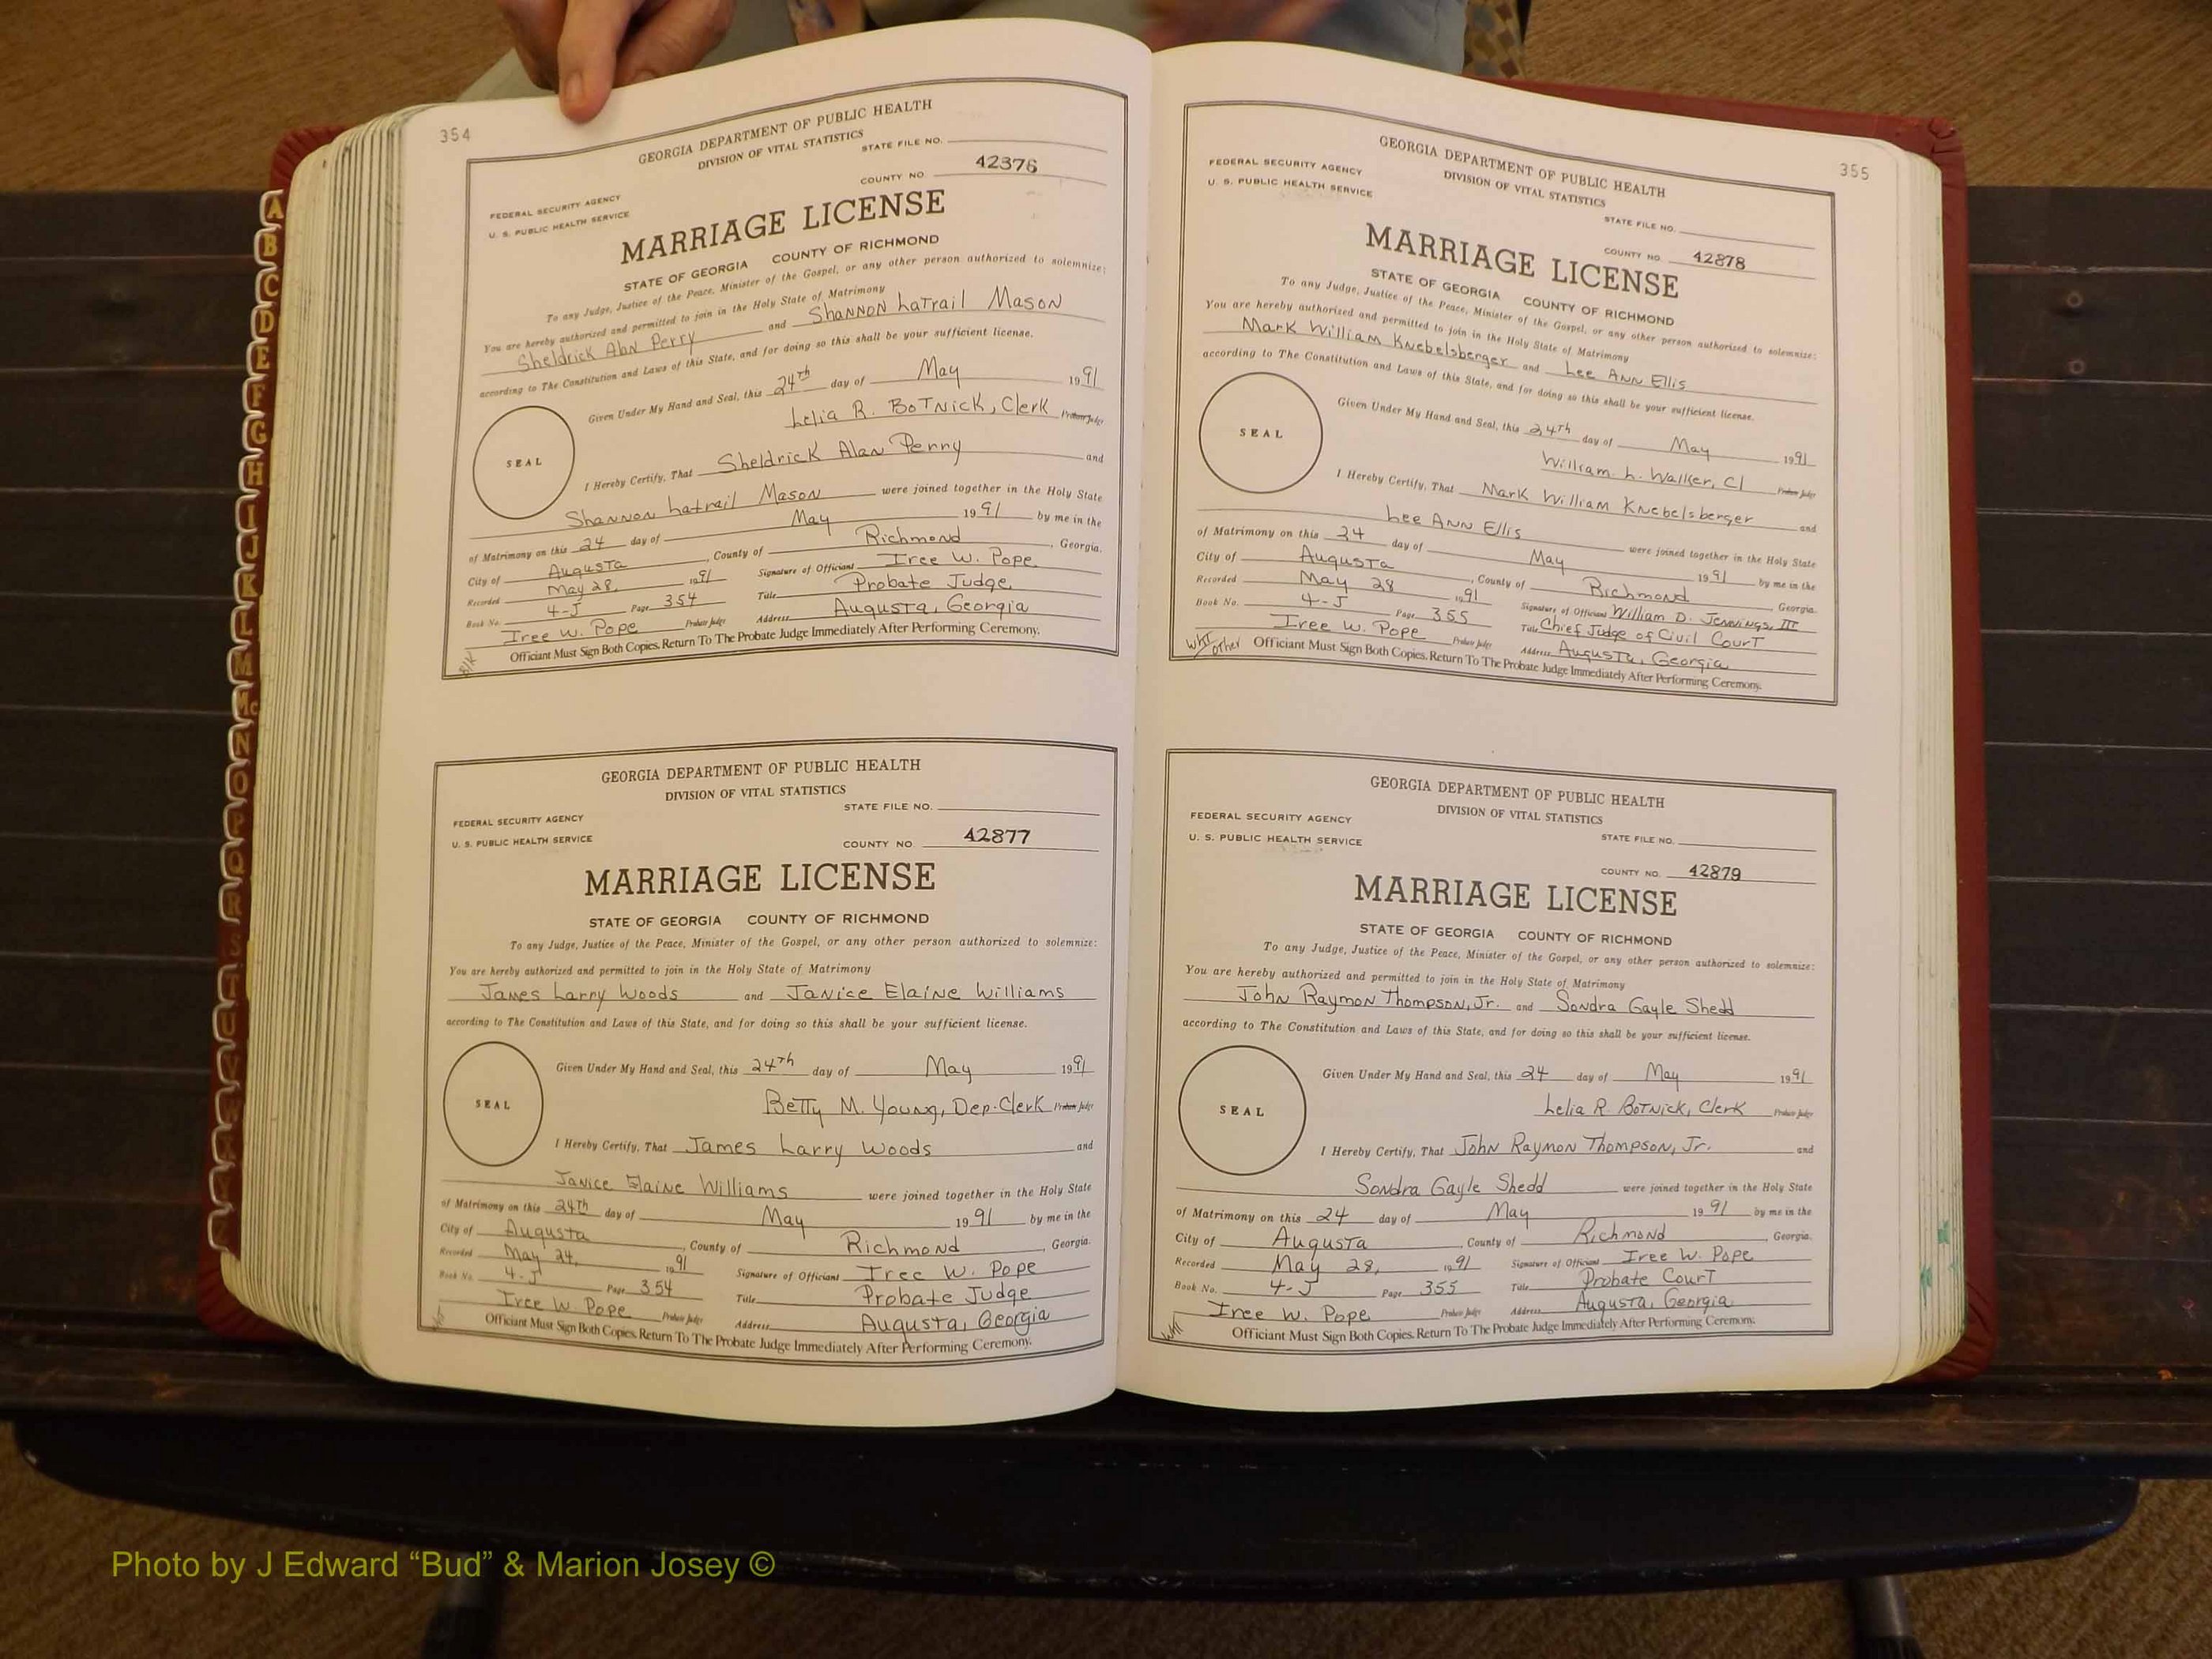 354
GEORGIA DEPARTMENT OF PUBLIC HEALTH
DIVISION OF VITAL STATISTICS
STATE FILE NO.
42376
COUNTY NO.
FEDERAL SECURITY AGENCY
U. S. PUBLIC HEALTH SERVICE
MARRIAGE LICENSE
STATE OF GEORGIA COUNTY OF RICHMOND
To any Judge, Justice of the Peace, Minister of the Gospel, or any other person authorized to solemnize:
You are hereby authorized and permitted to join in the Holy State of Matrimony
Sheldrick Alan Perry and Shannon Latrail Mason
according to The Constitution and Laws of this State, and for doing so this shall be your sufficient license.
Given Under My Hand and Seal, this 24th day of May 1991
Lelia R. Botnick, Clerk Probate Judge
SEAL
I Hereby Certify, That Sheldrick Alan Perry and
Shannon Latrail Mason were joined together in the Holy State
of Matrimony on this 24 day of May 1991 by me in the
City of Augusta, County of Richmond, Georgia.
Recorded May 28, 1991 Signature of Officiant Iree W. Pope
Book No. 4-J Page 354 Title Probate Judge
Iree W. Pope Probate Judge Address Augusta, Georgia
Officiant Must Sign Both Copies. Return To The Probate Judge Immediately After Performing Ceremony.
Blk
GEORGIA DEPARTMENT OF PUBLIC HEALTH
DIVISION OF VITAL STATISTICS
STATE FILE NO.
FEDERAL SECURITY AGENCY
U. S. PUBLIC HEALTH SERVICE
COUNTY NO. 42877
MARRIAGE LICENSE
STATE OF GEORGIA COUNTY OF RICHMOND
To any Judge, Justice of the Peace, Minister of the Gospel, or any other person authorized to solemnize:
You are hereby authorized and permitted to join in the Holy State of Matrimony
James Larry Woods and Janice Elaine Williams
according to The Constitution and Laws of this State, and for doing so this shall be your sufficient license.
Given Under My Hand and Seal, this 24th day of May 1991
Betty M. Young, Dep. Clerk Probate Judge
SEAL
I Hereby Certify, That James Larry Woods and
Janice Elaine Williams were joined together in the Holy State
of Matrimony on this 24th day of May 1991 by me in the
City of Augusta, County of Richmond, Georgia.
Recorded May 24, 1991 Signature of Officiant Iree W. Pope
Book No. 4-J Page 354 Title Probate Judge
Iree W. Pope Probate Judge Address Augusta, Georgia
Officiant Must Sign Both Copies. Return To The Probate Judge Immediately After Performing Ceremony.
355
GEORGIA DEPARTMENT OF PUBLIC HEALTH
DIVISION OF VITAL STATISTICS
FEDERAL SECURITY AGENCY
U. S. PUBLIC HEALTH SERVICE
STATE FILE NO.
COUNTY NO. 42878
MARRIAGE LICENSE
STATE OF GEORGIA COUNTY OF RICHMOND
To any Judge, Justice of the Peace, Minister of the Gospel, or any other person authorized to solemnize:
You are hereby authorized and permitted to join in the Holy State of Matrimony
Mark William Knebelsberger and Lee Ann Ellis
according to The Constitution and Laws of this State, and for doing so this shall be your sufficient license.
Given Under My Hand and Seal, this 24th day of May 1991
William L. Walker, Cl Probate Judge
SEAL
I Hereby Certify, That Mark William Knebelsberger and
Lee Ann Ellis were joined together in the Holy State
of Matrimony on this 24 day of May 1991 by me in the
City of Augusta, County of Richmond, Georgia.
Recorded May 28 1991 Signature of Officiant William D. Jennings, III
Book No. 4-J Page 355 Title Chief Judge of Civil Court
Iree W. Pope Probate Judge Address Augusta, Georgia
Wht/other Officiant Must Sign Both Copies. Return To The Probate Judge Immediately After Performing Ceremony.
GEORGIA DEPARTMENT OF PUBLIC HEALTH
DIVISION OF VITAL STATISTICS
FEDERAL SECURITY AGENCY
U. S. PUBLIC HEALTH SERVICE
STATE FILE NO.
COUNTY NO. 42879
MARRIAGE LICENSE
STATE OF GEORGIA COUNTY OF RICHMOND
To any Judge, Justice of the Peace, Minister of the Gospel, or any other person authorized to solemnize:
You are hereby authorized and permitted to join in the Holy State of Matrimony
John Raymon Thompson, Jr. and Sondra Gayle Shedd
according to The Constitution and Laws of this State, and for doing so this shall be your sufficient license.
Given Under My Hand and Seal, this 24 day of May 1991
Lelia R. Botnick, Clerk Probate Judge
SEAL
I Hereby Certify, That John Raymon Thompson, Jr. and
Sondra Gayle Shedd were joined together in the Holy State
of Matrimony on this 24 day of May 1991 by me in the
City of Augusta, County of Richmond, Georgia.
Recorded May 28, 1991 Signature of Officiant Iree W. Pope
Book No. 4-J Page 355 Title Probate Court
Iree W. Pope Probate Judge Address Augusta, Georgia
Wht Officiant Must Sign Both Copies. Return To The Probate Judge Immediately After Performing Ceremony.
A
B
C
D
E
F
G
H
I
J
K
L
M
Mc
N
O
P
Q
R
S
T
U
V
W
Photo by J Edward “Bud” & Marion Josey ©